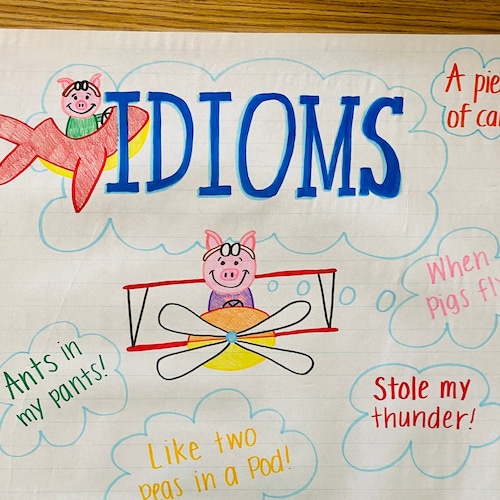 IDIOMS
A pie
of ca
When
pigs fly
Ants in
my pants!
Stole my
thunder!
Like two
peas in a Pod!